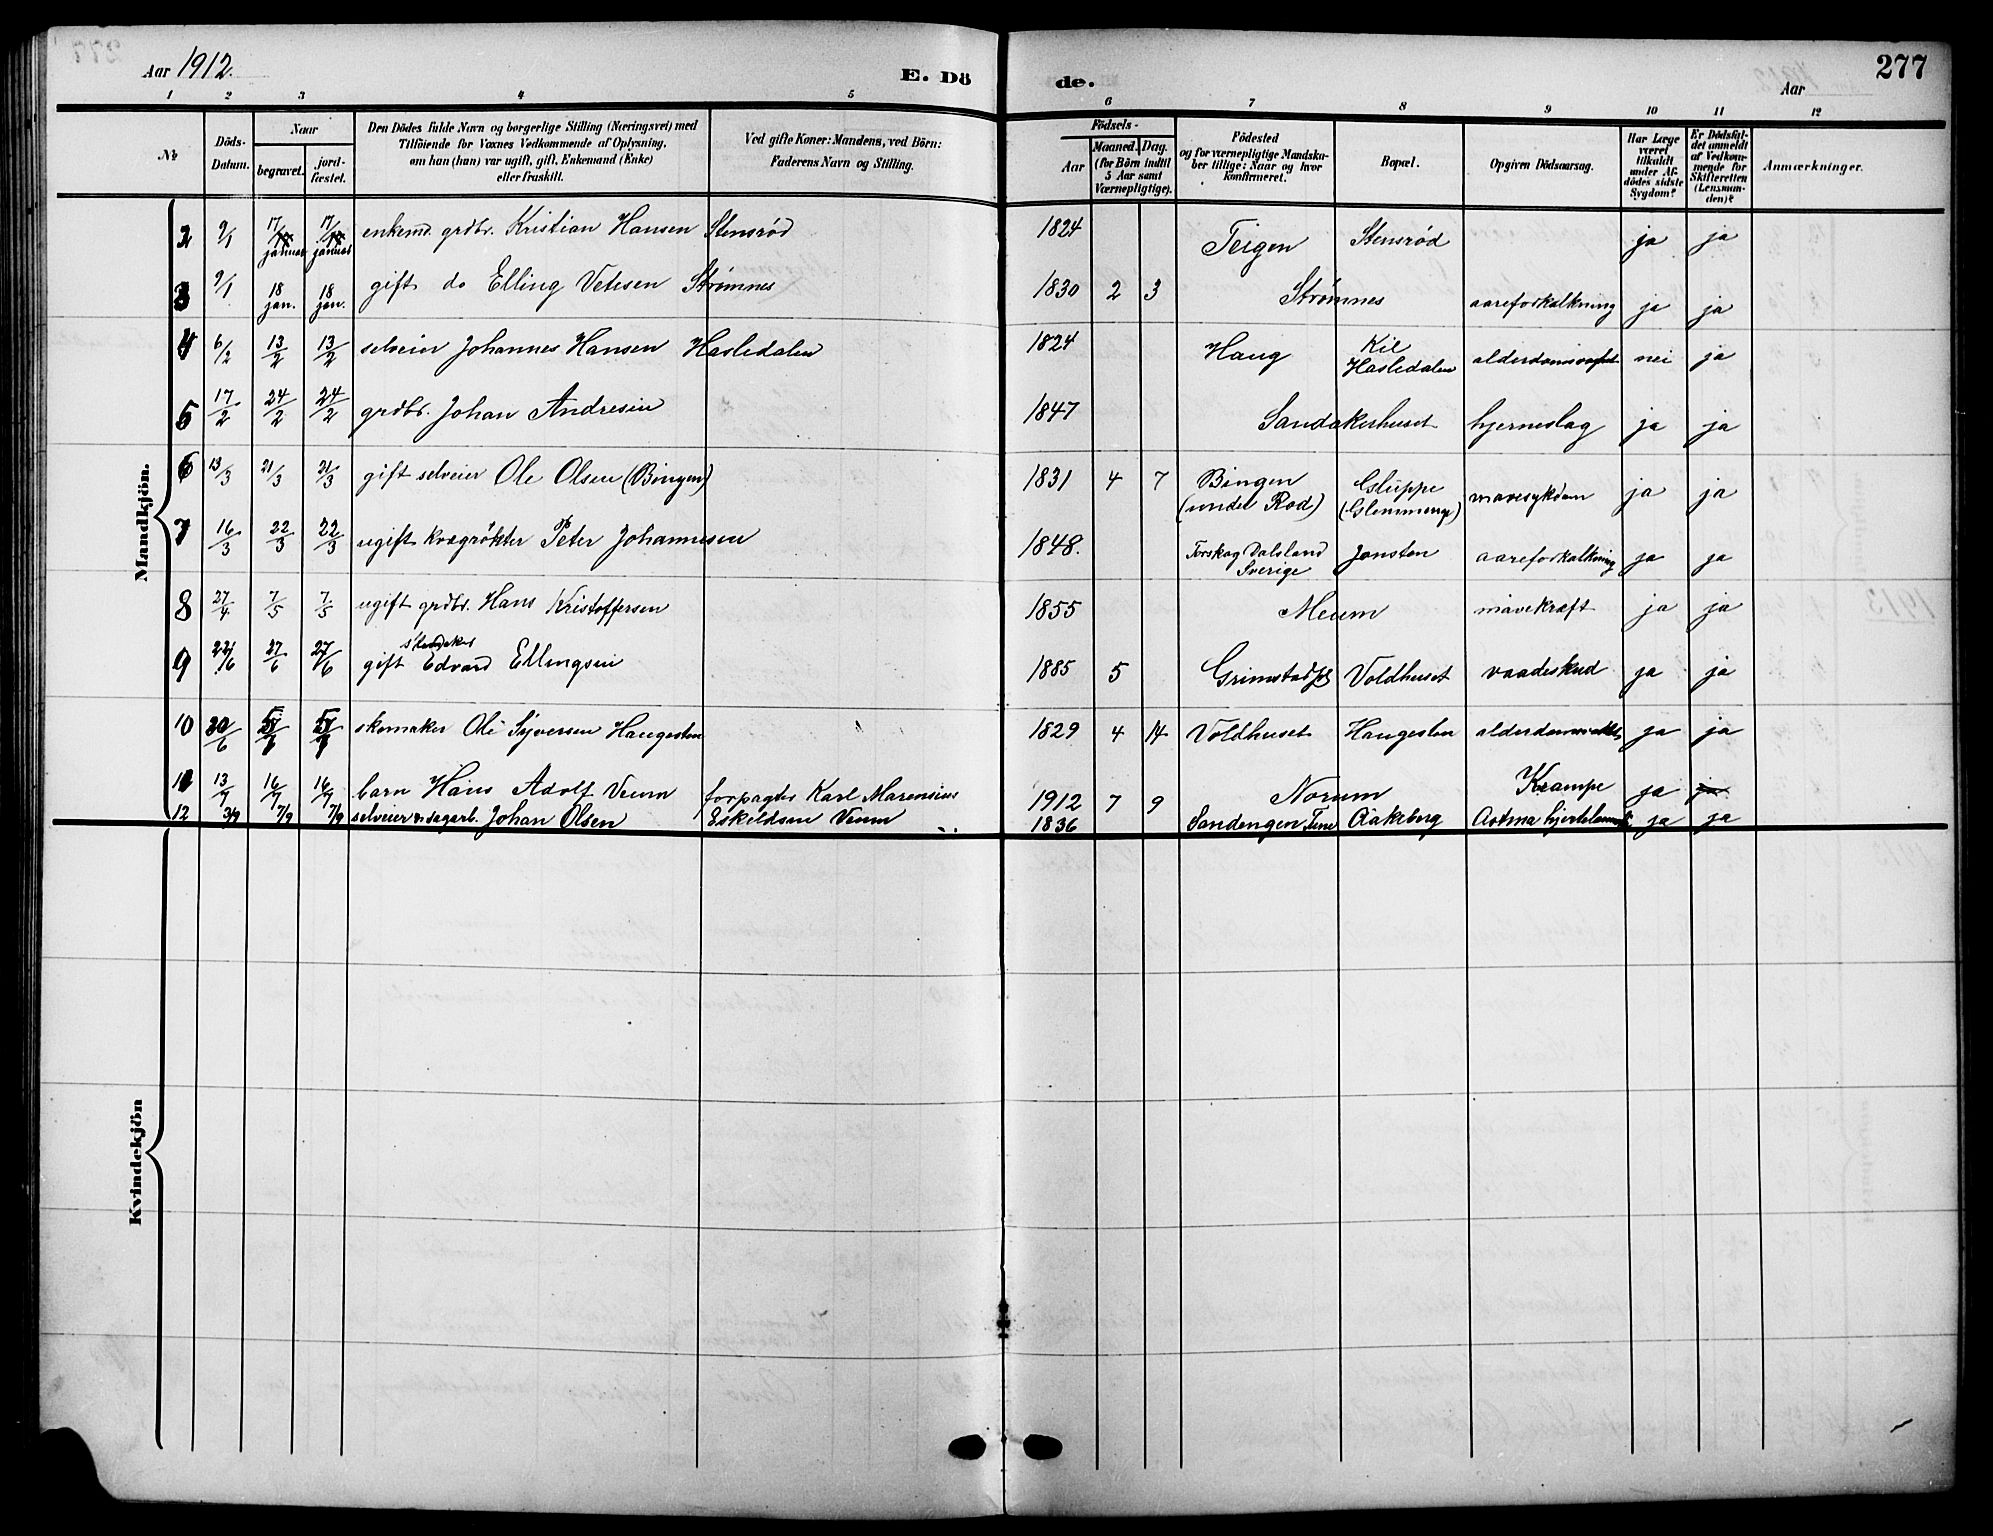 Aar 1912.
E. Dö
de.
Aar
277
1 2 3 4 5 6 7 8 9 10 11 12
Nr
Döds-
Datum.
Naar
begravet.
jord-
fæstet.
Den Dödes fulde Navn og borgerlige Stilling (Næringsvei) med
Tilföiende for Voxnes Vedkommende af Oplysning,
om han (hun) var ugift, gift, Enkemand (Enke)
eller fraskilt.
Ved gifte Koner: Mandens, ved Börn:
Faderens Navn og Stilling.
Födsels-
Aar
Maaned. Dag.
(for Börn indtil
5 Aar samt
Værnepligtige).
Födested
og for værnepligtige Mandsku-
ber tillige: Naar og hvor
konfirmeret.
Bopæl.
Opgiven Dödsaarsag.
Har Læge
været
tilkaldt
under Af-
dödes sidste
Sygdom?
Er Dödsfal-
det anmeldt
af Vedkom-
mende for
Skifteretten
(Lensman-
den)?
Anmærkninger.
Mandkjön.
2 9/1 17/ januar 17/ januar enkemd. grdbr. Kristian Hansen Stensrød 1824 Teigen Stensrød ja ja
3 9/1 18 jan. 18 jan. gift do Elling Vetesen Strømnes 1830 2 3 Strømnes aareforkalkning ja ja
4 6/2 13/2 13/2 selveier Johannes Hansen Hasledalen 1824 Haug Kil
Hasledalen nei ja
5 17/2 24/2 24/2 grdbr. Johan Andresen 1847 Sandakerhuset hjerneslag ja ja
6 13/3 21/3 21/3 gift selveier Ole Olsen (Bingen) 1831 4 7 Bingen
(under Rod) Gluppe
(Glemminge) mavesykdom ja ja
7 16/3 22/3 22/3 ugift kvægrökter Peter Johannesen 1848. Torskog Dalsland
Sverige Jonsten aareforkalkning ja ja
8 27/4 7/5 7/5 ugift grdbr. Hans Kristoffersen 1855 Meum mavekræft ja ja
9 22/6 27/6 27/6 gift Edvard Ellingsen 1885 5 Grimstad Voldhuset vaadeskud ja ja
10 30/6 5/7 5/7 skomaker Ole Syversen Haugesten 1829 4 14 Voldhuset Haugesten ja ja
11 13/7 16/7 16/7 barn Hans Adolf Veum forpagter Karl Marensius
Eskildsen Veum 1912 7 9 Norum Krampe ja ja
12 3/9 7/9 7/9 selveier & dagarb. Johan Olsen 1836 Sandengen Tune Aakeberg Astma ja ja
Kvindekjön